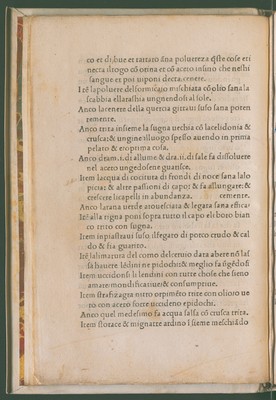 co et di bue et tartaro & na poluereza q̄ste cose eti
necta iltogo cō orina et cō aceto insino che neshi
sangue et poi uiponi decta cenere.
Itē lapoluere del formicaio mischiata cō olio sana la
scabbia ellarastia ungnendosi al sole.
Anco lacenere della quercia gittaui suso sana poten
temente.
Anco trita insieme la sugna uechia cō lacelidonia &
crusca: & ungne illuogo spesso auendo in prima
pelato & eroprima cosa.
Anco dram. i. di allume & dra. ii. di sale fa dissoluere
nel aceto ungedosene guarisce.
Item lacqua di cocitura di frondi di noce sana lalo
picia: & altre passioni di capo: & fa allungare: &
crescere licapelli in abundanza. cemente.
Anco latana uerde atouesciata & legata sana efica
Itē alla rigna poni sopra tutto il capo eli boro bian
co trito con sugna.
Item inpiastraui suso ilfegato di porco crudo & cal
do & fia guarito.
Itē lalimatura del corno del ceruio data abere nō las
sa hauere lēdini ne pidochi: & meglio sa ūgēdosi
Item uccidonsi li lendini con tutte chose che sieno
amare mondificatiue & consumptiue.
Item strafizagra nitro orpimēto trite con olioro ue
ro con aceto forte uccideno epidochi.
Anco quel medesimo fa acqua salsa cō crusca trita.
Item storace & mignatte ardino īsieme meschiādo